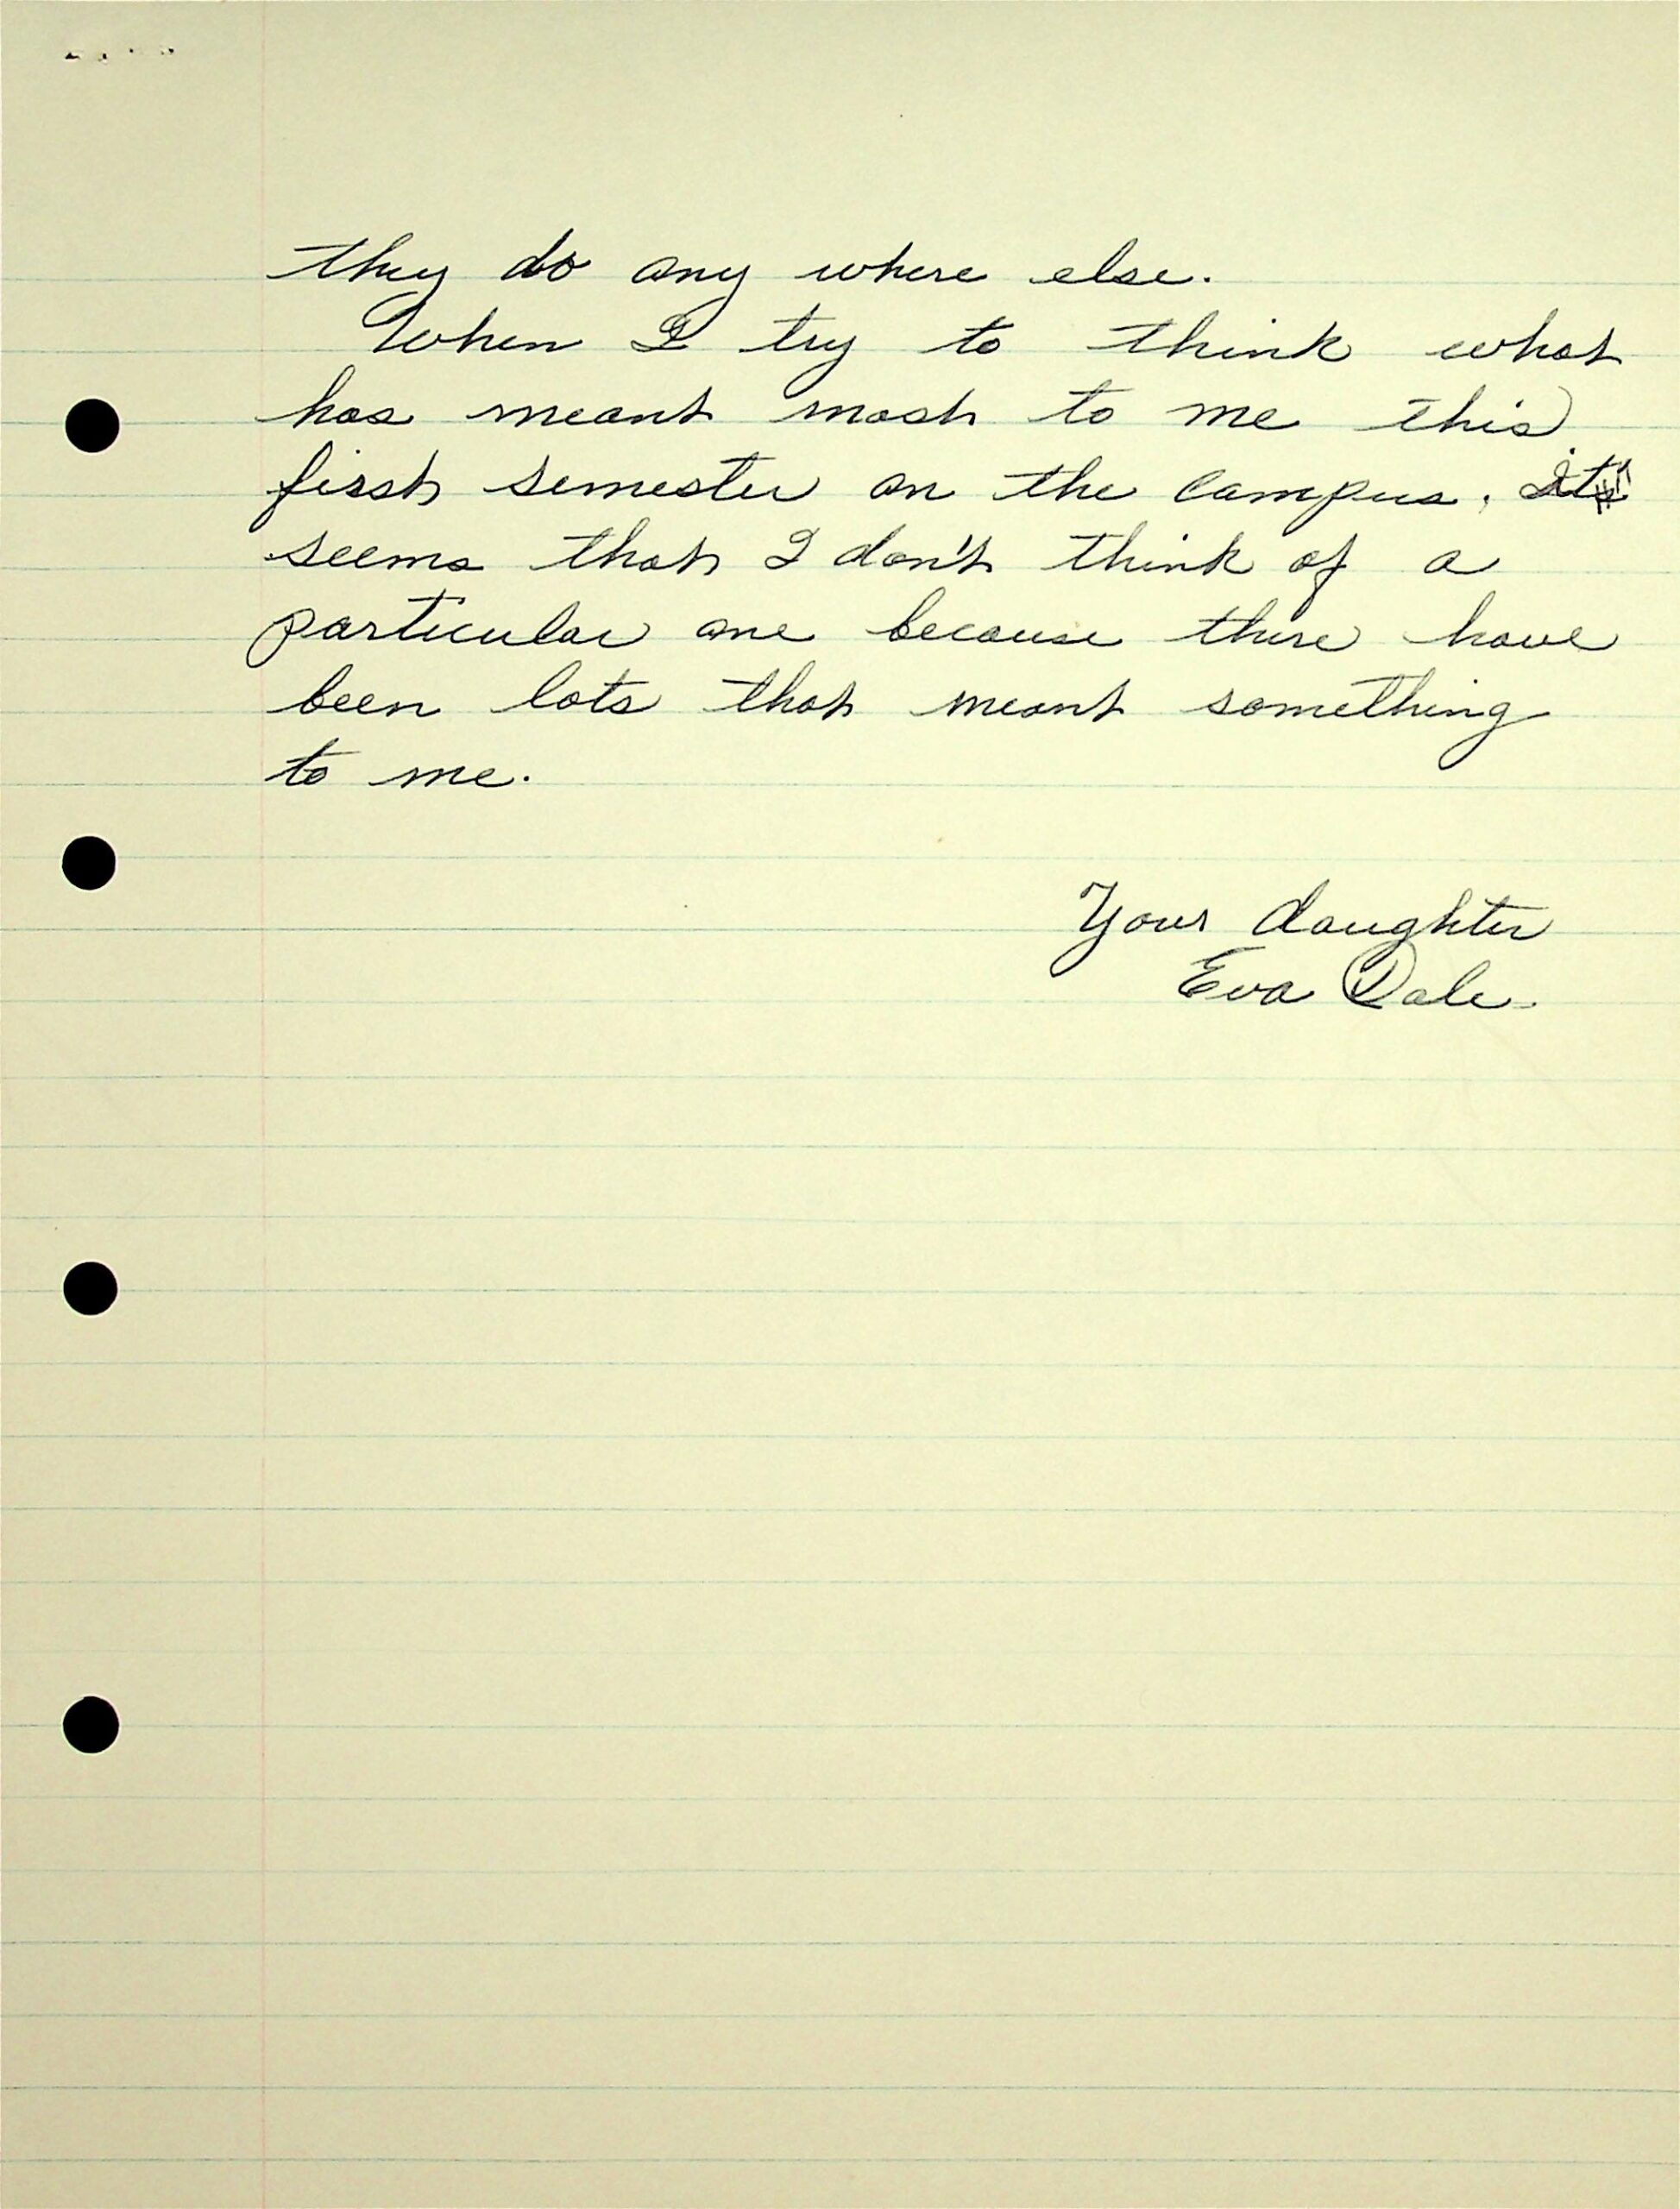 they do any where else.
When I try to think what
has meant most to me this
first semester on the campus. It
seems that I don't think of a
particular one because there have
been lots that meant something
to me.
Your daughter
Eva Dale.